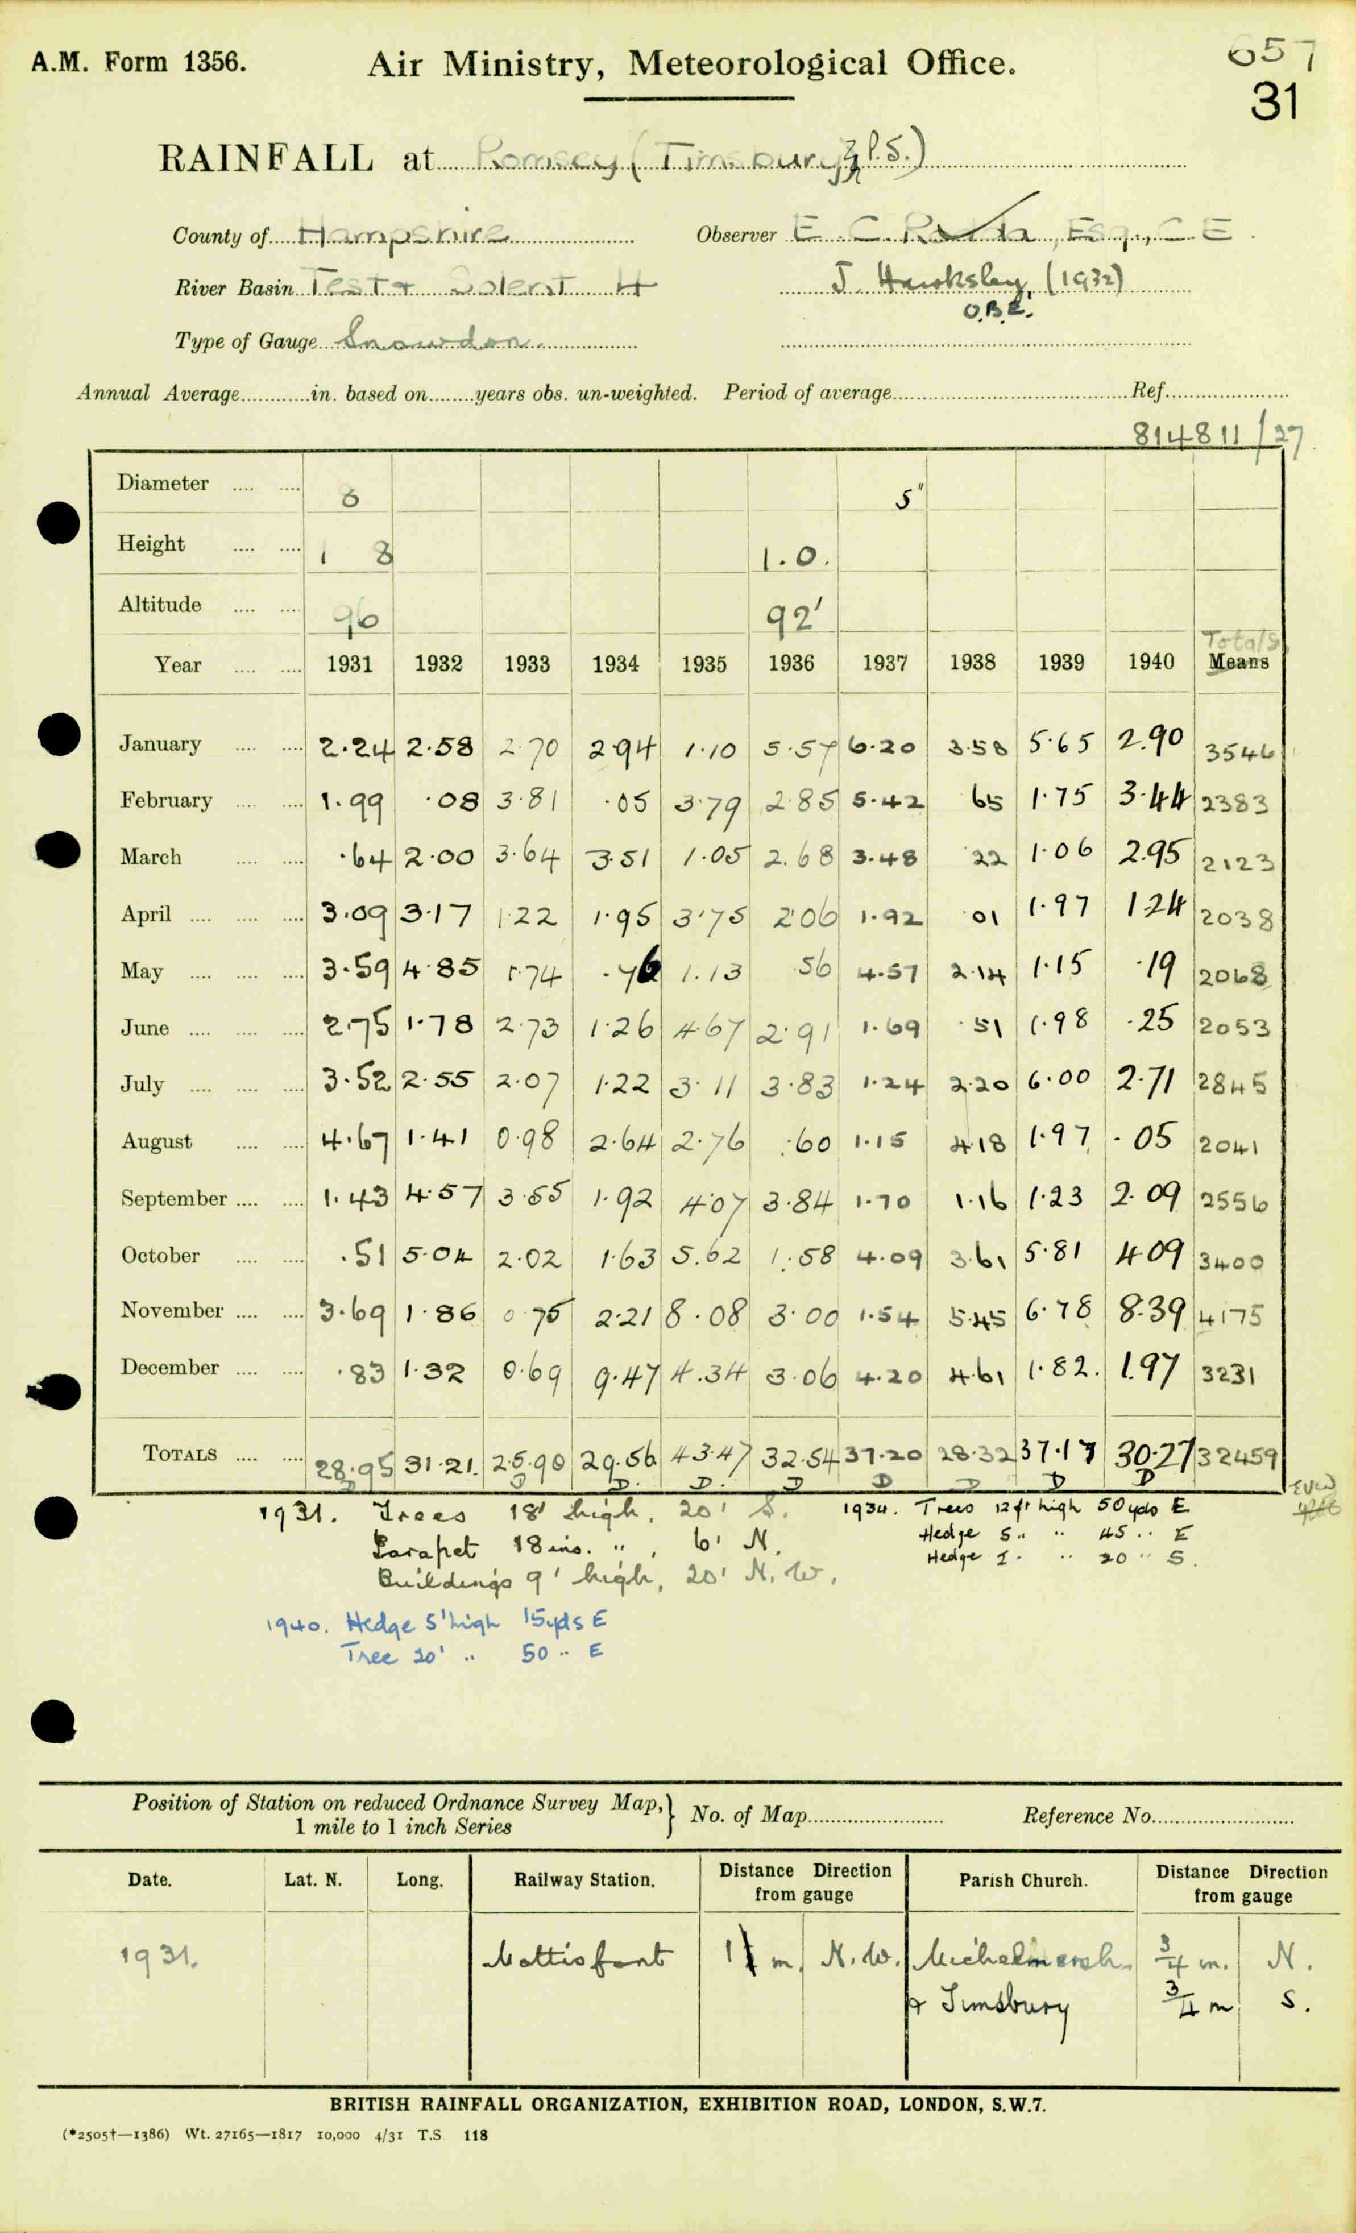 A.M. Form 1356. Air Ministry, Meteorological Office. 657
31
RAINFALL at Romsey (Timsbury P.S.)
County of Hampshire Observer E. C. Rodda, Esq., C.E.
River Basin Test & Solent H J. Hawksley, (1932)
O.B.E.
Type of Gauge Snowdon
Annual Average in. based on years obs. un-weighted. Period of average Ref.
814811/27
Diameter 8 5"
Height 1 8 1.0.
Altitude 96 92'
Totals
Year 1931 1932 1933 1934 1935 1936 1937 1938 1939 1940 Means
January 2.24 2.58 2.70 2.94 1.10 5.57 6.20 3.58 5.65 2.90 3546
February 1.99 .08 3.81 .05 3.79 2.85 5.42 65 1.75 3.44 2383
March .64 2.00 3.64 3.51 1.05 2.68 3.48 22 1.06 2.95 2123
April 3.09 3.17 1.22 1.95 3.75 2.06 1.92 01 1.97 1.24 2038
May 3.59 4.85 1.74 .76 1.13 56 4.57 2.14 1.15 .19 2068
June 2.75 1.78 2.73 1.26 4.67 2.91 1.69 .51 1.98 .25 2053
July 3.52 2.55 2.07 1.22 3.11 3.83 1.24 2.20 6.00 2.71 2845
August 4.67 1.41 0.98 2.64 2.76 .60 1.15 4.18 1.97 .05 2041
September 1.43 4.57 3.55 1.92 4.07 3.84 1.70 1.16 1.23 2.09 2556
October .51 5.04 2.02 1.63 5.62 1.58 4.09 3.61 5.81 4.09 3400
November 3.69 1.86 0.75 2.21 8.08 3.00 1.54 5.45 6.78 8.39 4175
December .83 1.32 0.69 9.47 4.34 3.06 4.20 4.61 1.82. 1.97 3231
TOTALS 28.95 31.21. 25.90 29.56 43.47 32.54 37.20 28.32 37.17 30.27 32459
D D D. D. D D D D D
1931. Trees 18' high, 20' S. 1934. Trees 12 ft high 50 yds E
Parapet 18 ins. ", 6' N. Hedge 5 " " 45 " E
Buildings 9' high, 20' N.W. Hedge 1 " " 20 " S.
1940. Hedge 5' high 15 yds E
Tree 20' " 50 " E
Position of Station on reduced Ordnance Survey Map, 1 mile to 1 inch Series } No. of Map Reference No.
Date. Lat. N. Long. Railway Station. Distance Direction from gauge Parish Church. Distance Direction from gauge
1931. Mottisfont 1 m. N.W. Michelmersh 3/4 m. N.
& Timsbury 3/4 m S.
BRITISH RAINFALL ORGANIZATION, EXHIBITION ROAD, LONDON, S.W.7.
(*2505†—1386) Wt. 27165—1817 10,000 4/31 T.S. 118